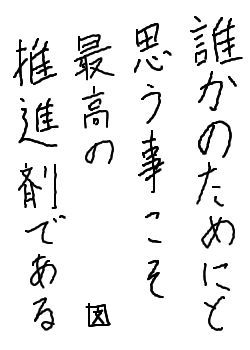 誰かのためにと
思う事こそ
最高の
推進剤である